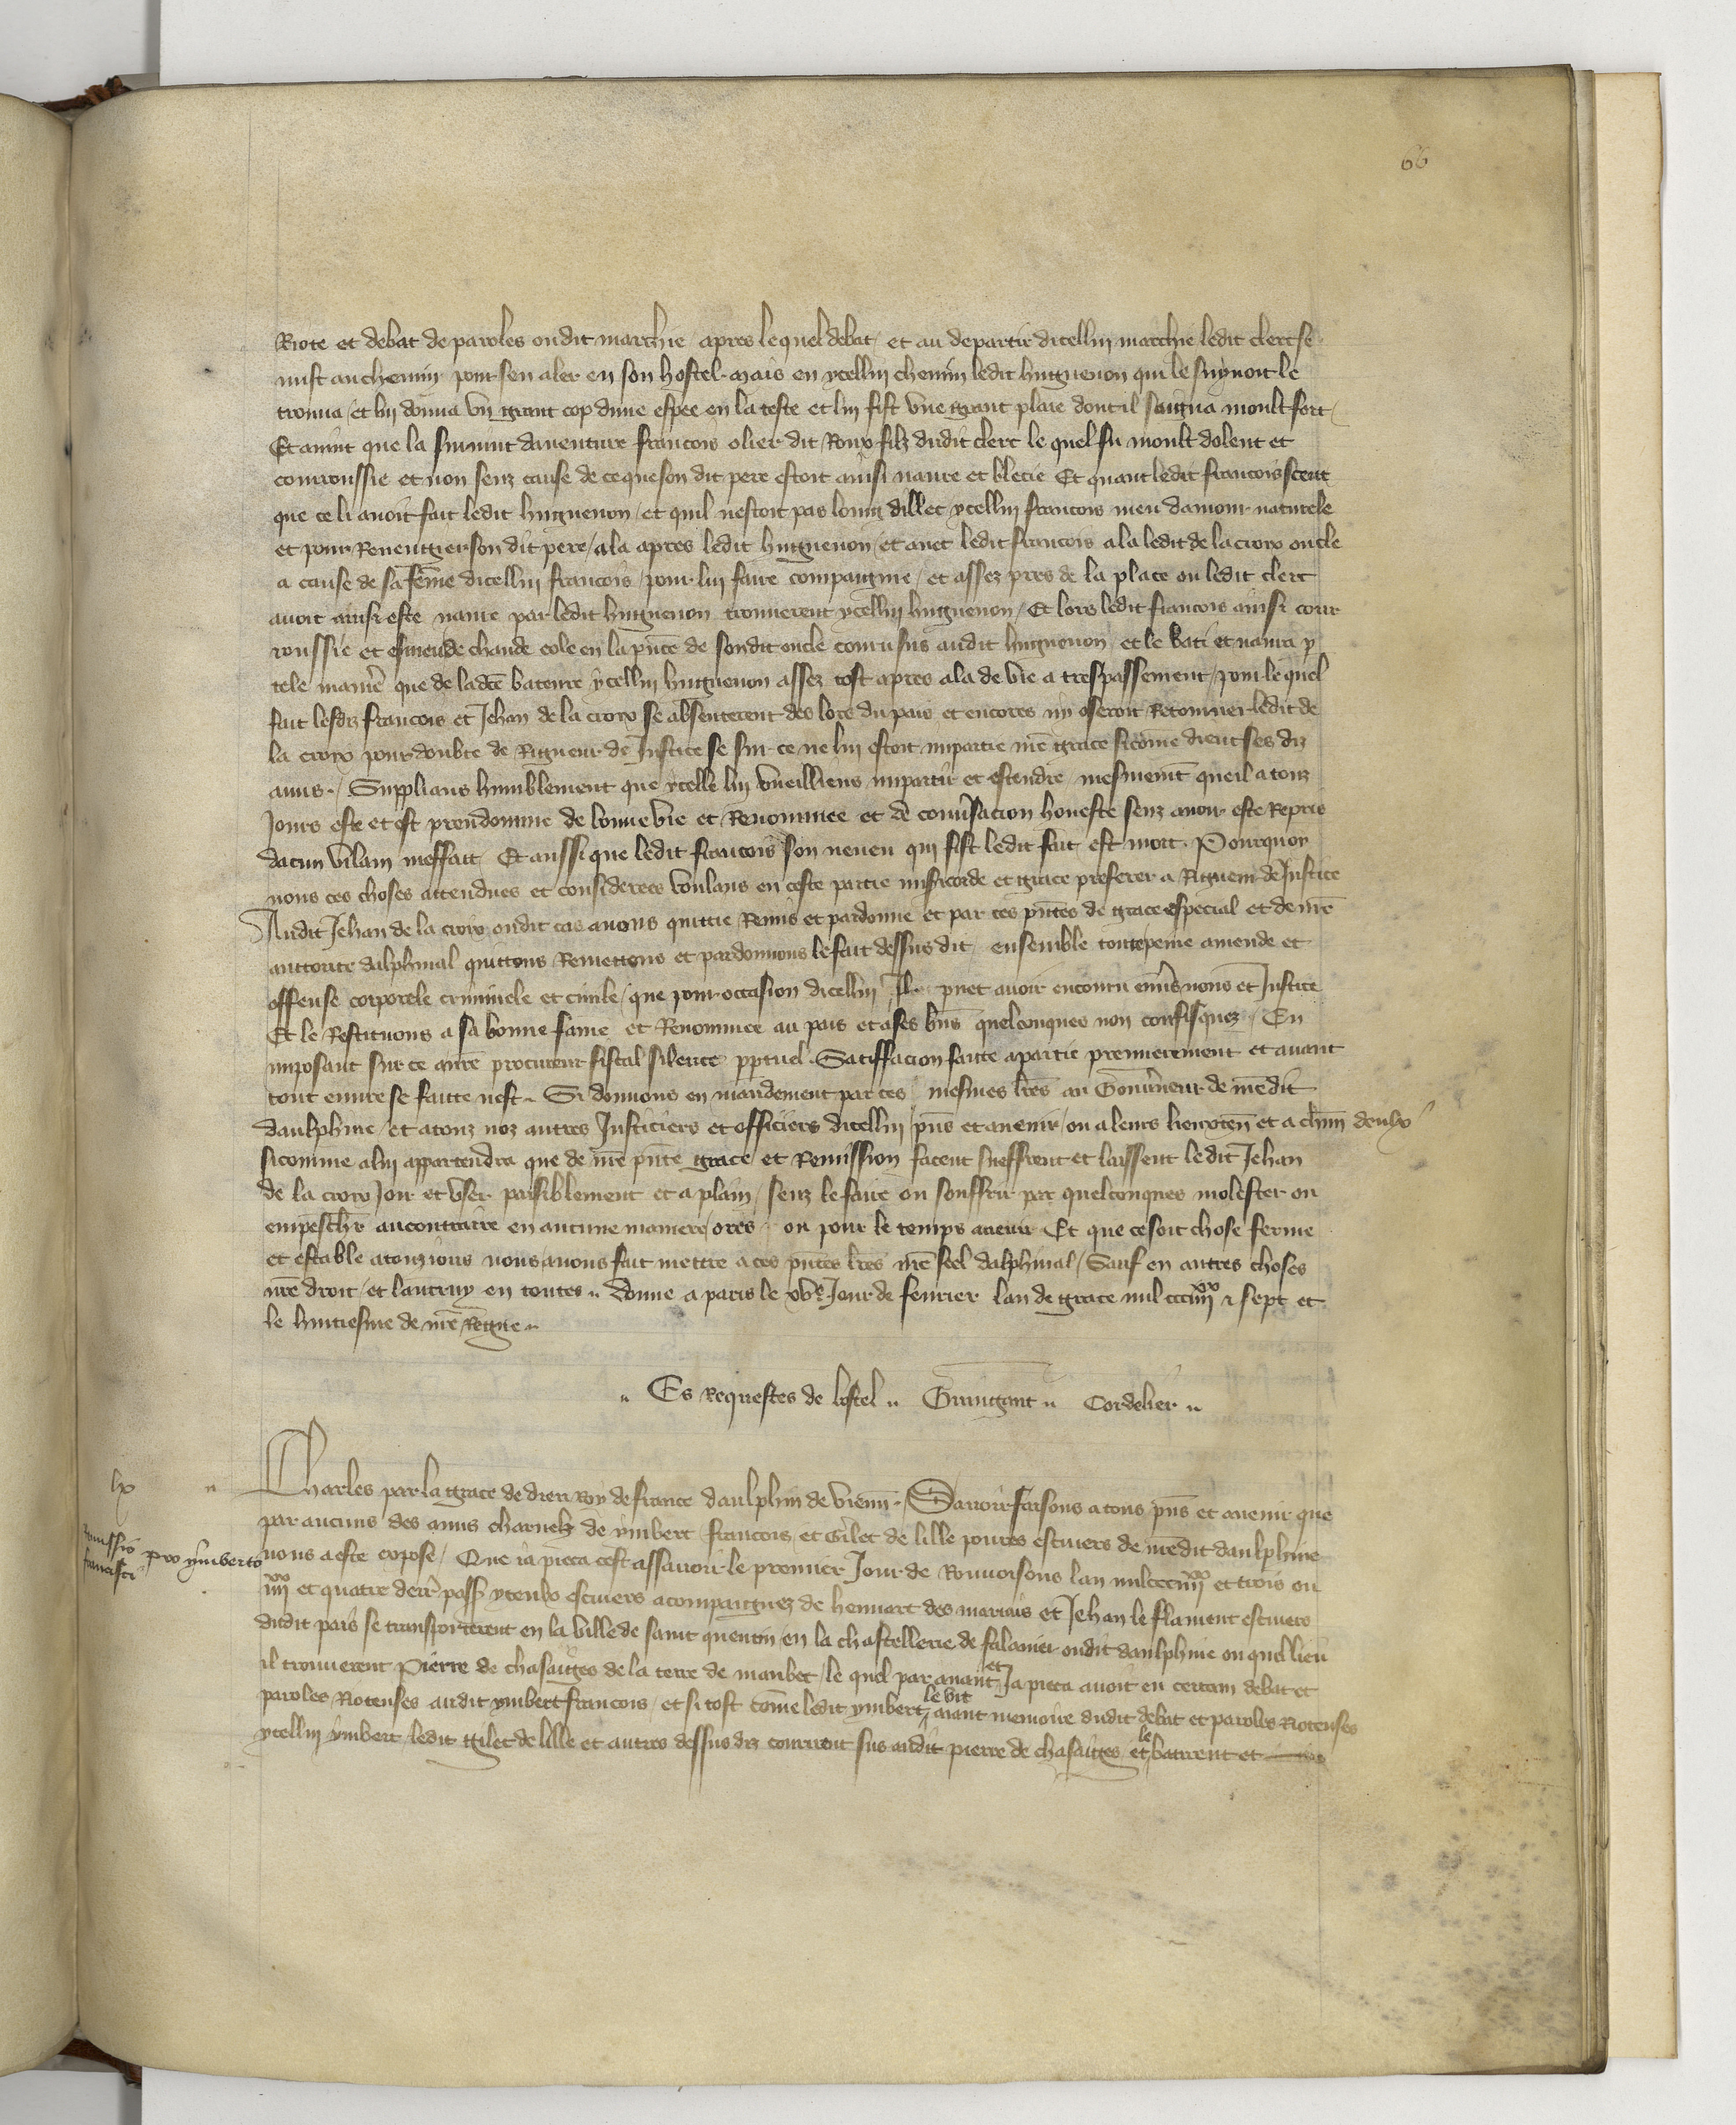 66
Riote et debat de paroles oudit marchie / apres lequel debat / et au departir dicellui marchie ledit clerc se
mist au chemin pour sen aler en son hostel mais en ycellui chemin ledit huguenon qui le suyuoit le
trouua / et lui donna un grant cop dune espee en la teste et lui fist une grant plaie dont il saigna moult fort /
Et auint que la suruint dauenture francois olier dit Roux filz dudit clerc le quel fu moult dolent et
courroussie et non senz cause de ce que son dit pere estoit ainsi naure et blecie Et quant ledit francois sceut
que ce li auoit fait ledit huguenon / et quil nestoit pas loing dillec ycellui francois meu damour naturele
et pour Reuengier son dit pere / ala apres ledit huguenon / et auec ledit francois ala ledit de la croix oncle
a cause de sa feme dicellui francois / pour lui faire compaignie / et assez pres de la place ou ledit clerc
auoit ainsi este naure par ledit huguenon trouuerent ycellui huguenon / Et lors ledit francois ainsi cour
roussie et esmeu de chaude cole en la pnce de sondit oncle couru sus audit huguenon et le bati et naura p
tele manie que de ladce bateure ycellui huguenon assez tost apres ala de vie a trespassement / pour le quel
fait lesdiz francois et Jehan de la croix se absenterent des lors du pais et encores ny oseroit Retourner ledit de
la croix pour doubte de Rigueur de Justice se sur ce ne lui estoit impartie nre grace sicome dient ses diz
amis / Supplians humblement que ycelle lui vueilliens impartir et estendre / mesmemt que il a touz
Jours este et est preudomme de bonne vie et Renommee et de conusacion honeste senz auoir este Repris
dacun vilain meffait Et aussi que ledit francois son neueu qui fist ledit fait est mort. Pourquoy
nous ces choses attendues et considerees voulans en ceste partie misicorde et grace preferer a Rigueur de Justice
Audit Jehan de la croix oudit cas auons quittie Remis et pardonne et par ces pntes de grace especial et de nre
auttorite dalphinal quittons Remettons et pardonnons le fait dessus dit ensemble toute peine amende et
offense corporele criminele et ciuile / que pour occasion dicellui Il puet auoir encouru enuers nous et Justice
Et le Restituons a sa bonne fame et Renommee au pais et a ses bns quelconques non confisquez / En
imposant sur ce anre procureur fiscal silence pptuel Satisffacion faite a partie premierement et auant
tout euure se faitte nest Si donnons en mandement par ces mesmes lres au Gouuneur de nredit
daulphine / et a touz noz autres Justiciers et officiers dicellui pns et auenir / ou a leurs lieuxten et a chun deulx
sicomme a lui appartendra que de nre pnte grace et Remission facent sueffrent et laissent ledit Jehan
de la croix Joir et user paisiblement et a plain / senz le faire ou souffrir par quelconques molester ou
empeschr au contraire en aucune maniere / ores ou pour le temps auenir Et que ce soit chose ferme
et estable a touzjours nous auons fait mettre a ces pntes lres nre seel dalphinal / Sauf en autres choses
nre droit / et lautruy en toutes Donne a paris le xve Jour de feurier lan de grace mil ccciiiixx & sept et
le huitiesme de nre Regne

Es Requestes de lostel Cordelier

lx
Charles par la grace de dieu Roy de france daulphin de vienn / Sauoir faisons a tous pns et auenir que
par aucuns des amis charnelz de ymbert francois et Gilet de lille poures escuiers de nredit daulphine
Remissio pro ymberto francisci
nous a este expose / Que ia pieca cest assauoir le premier Jour de Rouuoisons lan mil ccciiiixx et trois ou
iiiixx et quatre derr pass yceulx escuiers acompaignez de hennart des marais et Jehan le flament escuiers
dudit pais se transporterent en la ville de saint quentin en la chastellerie de falauier oudit daulphine ou quel lieu
il trouuerent Pierre de chasaiges de la terre de maubec / le quel par auant et Ja pieca auoit eu certain debat et
paroles Rotenses audit ymbert francois / et si tost come ledit ymbert le vit aiant memoire dudit debat et paroles Rotenses
ycellui ymbert / ledit Gilet de lille et autres dessus diz coururent sus audit pierre de chasaiges et le batirent et